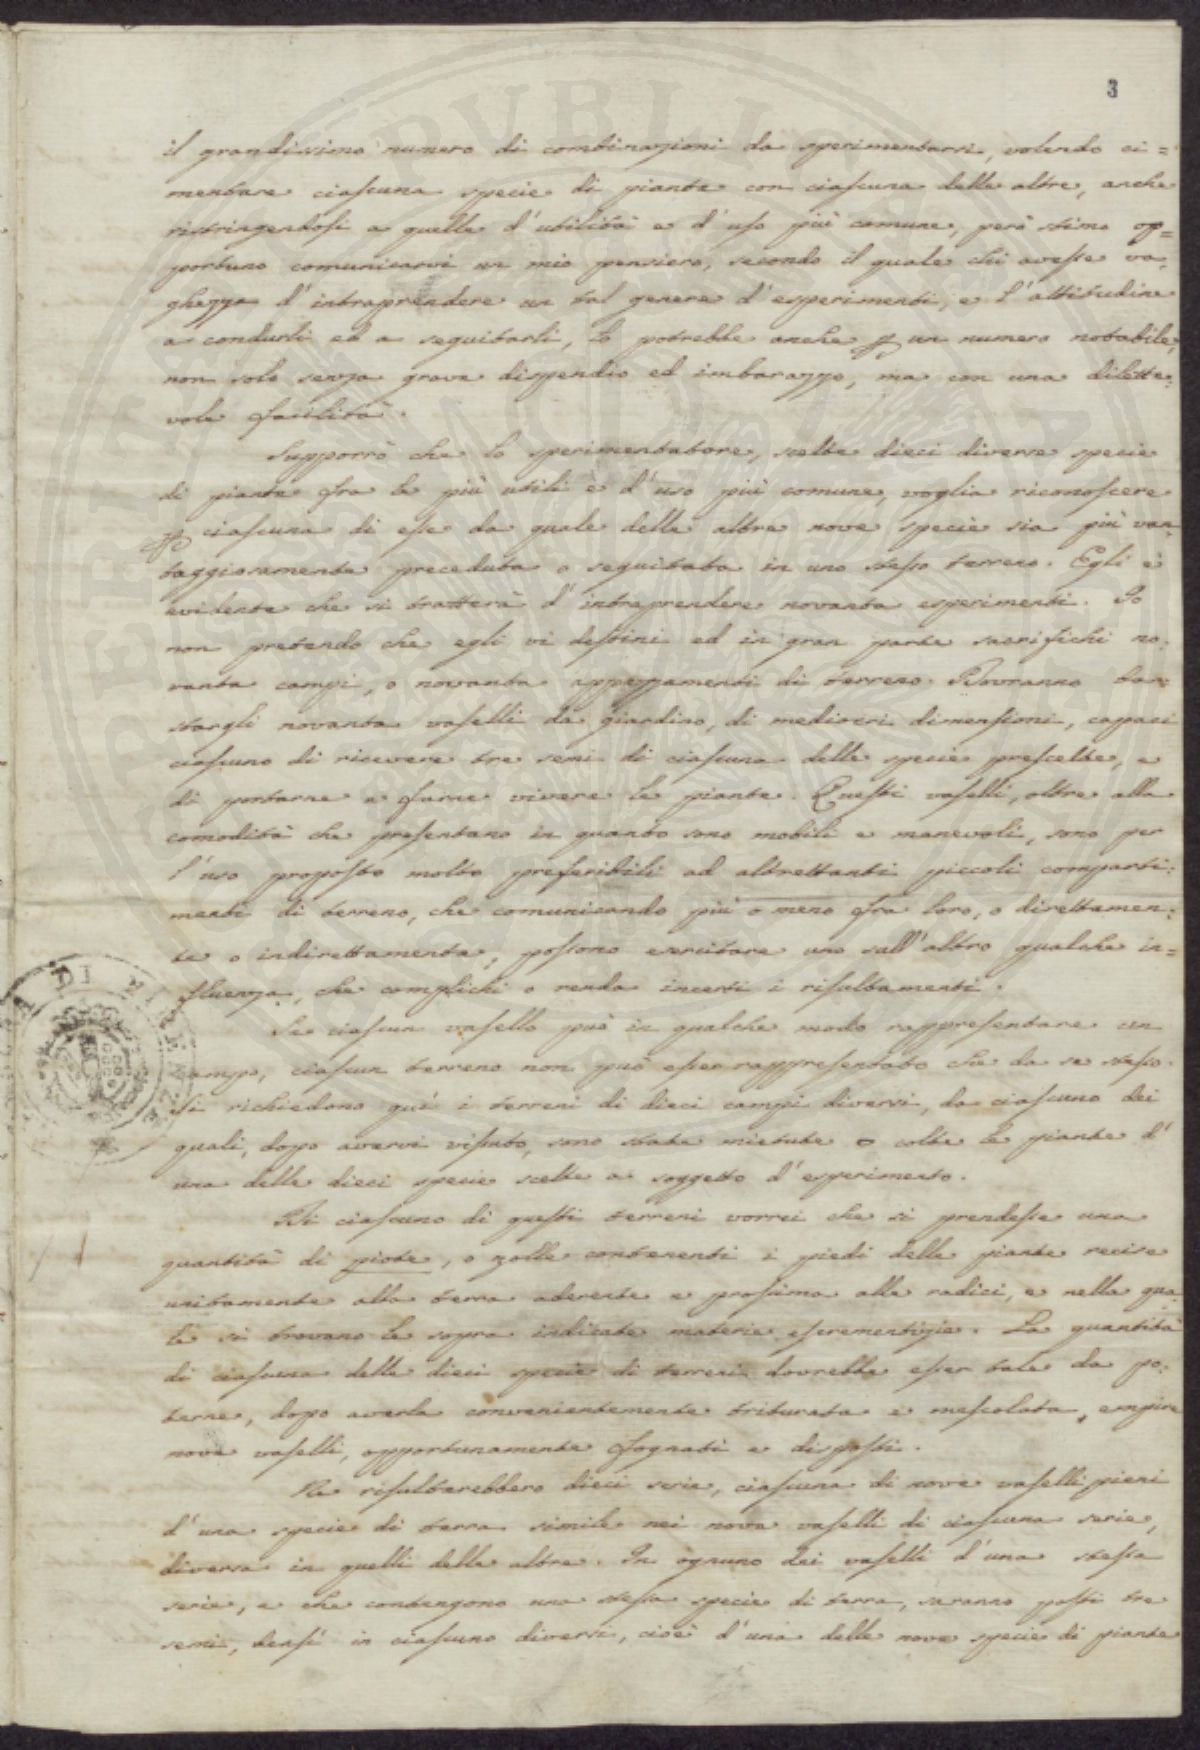 3
il grandissimo numero di combinazioni da sperimentarsi, volendo ci=
mentare ciascuna specie di piante con ciascuna delle altre, anche
ristringendosi a quelle d'utilità e d'uso più comune, però stimo op=
portuno comunicarvi un mio pensiero, secondo il quale chi avesse va,
ghezza d'intraprendere un tal genere d'esperimenti, e l'attitudine
a condurli ed a seguitarli, lo potrebbe anche p un numero notabile,
non solo senza grave dispendio ed imbarazzo, ma con una dilette,
vole facilità.
Supporrò che lo sperimentatore, scelte dieci diverse specie
di piante fra le più utili e d'uso più comune, voglia riconoscere
p ciascuna di esse da quale delle altre nove specie sia più van,
taggiosamente preceduta o seguitata in uno stesso terreno. Egli è
evidente che si tratterà d'intraprendere novanta esperimenti. Io
non pretendo che egli vi destini ed in gran parte sacrifichi no,
vanta campi, o novanta appezzamenti di terreno. Dovranno ba,
stargli novanta vaselli da giardino, di mediocri dimensioni, capaci
ciascuno di ricevere tre semi di ciascuna delle specie prescelte, e
di portarne e farne vivere le piante. Questi vaselli, oltre alla
comodità che presentano in quanto sono mobili e manevoli, sono per
l'uso proposto molto preferibili ad altrettanti piccoli comparti,
menti di terreno, che comunicando più o meno fra loro, o direttamen,
te o indirettamente, possono esercitare uno sull'altro qualche in=
fluenza, che complichi o renda incerti i risultamenti.
Se ciascun vasello può in qualche modo rappresentare un
campo, ciascun terreno non può esser rappresentato che da se stesso.
Si richiedono quì i terreni di dieci campi diversi, da ciascuno dei
quali, dopo avervi vissuto, sono state mietute o colte le piante d'
una delle dieci specie scelte a soggetto d'esperimento.
Di ciascuno di questi terreni vorrei che si prendesse una
quantità di piote, o zolle contenenti i piedi delle piante recise
unitamente alla terra aderente e prossima alle radici, e nella qua
le si trovano le sopra indicate materie escrementizie. La quantità
di ciascuna delle dieci specie di terreni dovrebbe esser tale da po,
terne, dopo averla convenientemente triturata e mescolata, empire
nove vaselli, opportunamente fognati e disposti.
Ne risulterebbero dieci serie, ciascuna di nove vaselli pieni
d'una specie di terra simile nei nove vaselli di ciascuna serie,
diversa in quelli delle altre. In ognuno dei vaselli d'una stessa
serie, e che contengono una stessa specie di terra, saranno posti tre
semi, bensì in ciascuno diversi, cioè d'una delle nove specie di piante